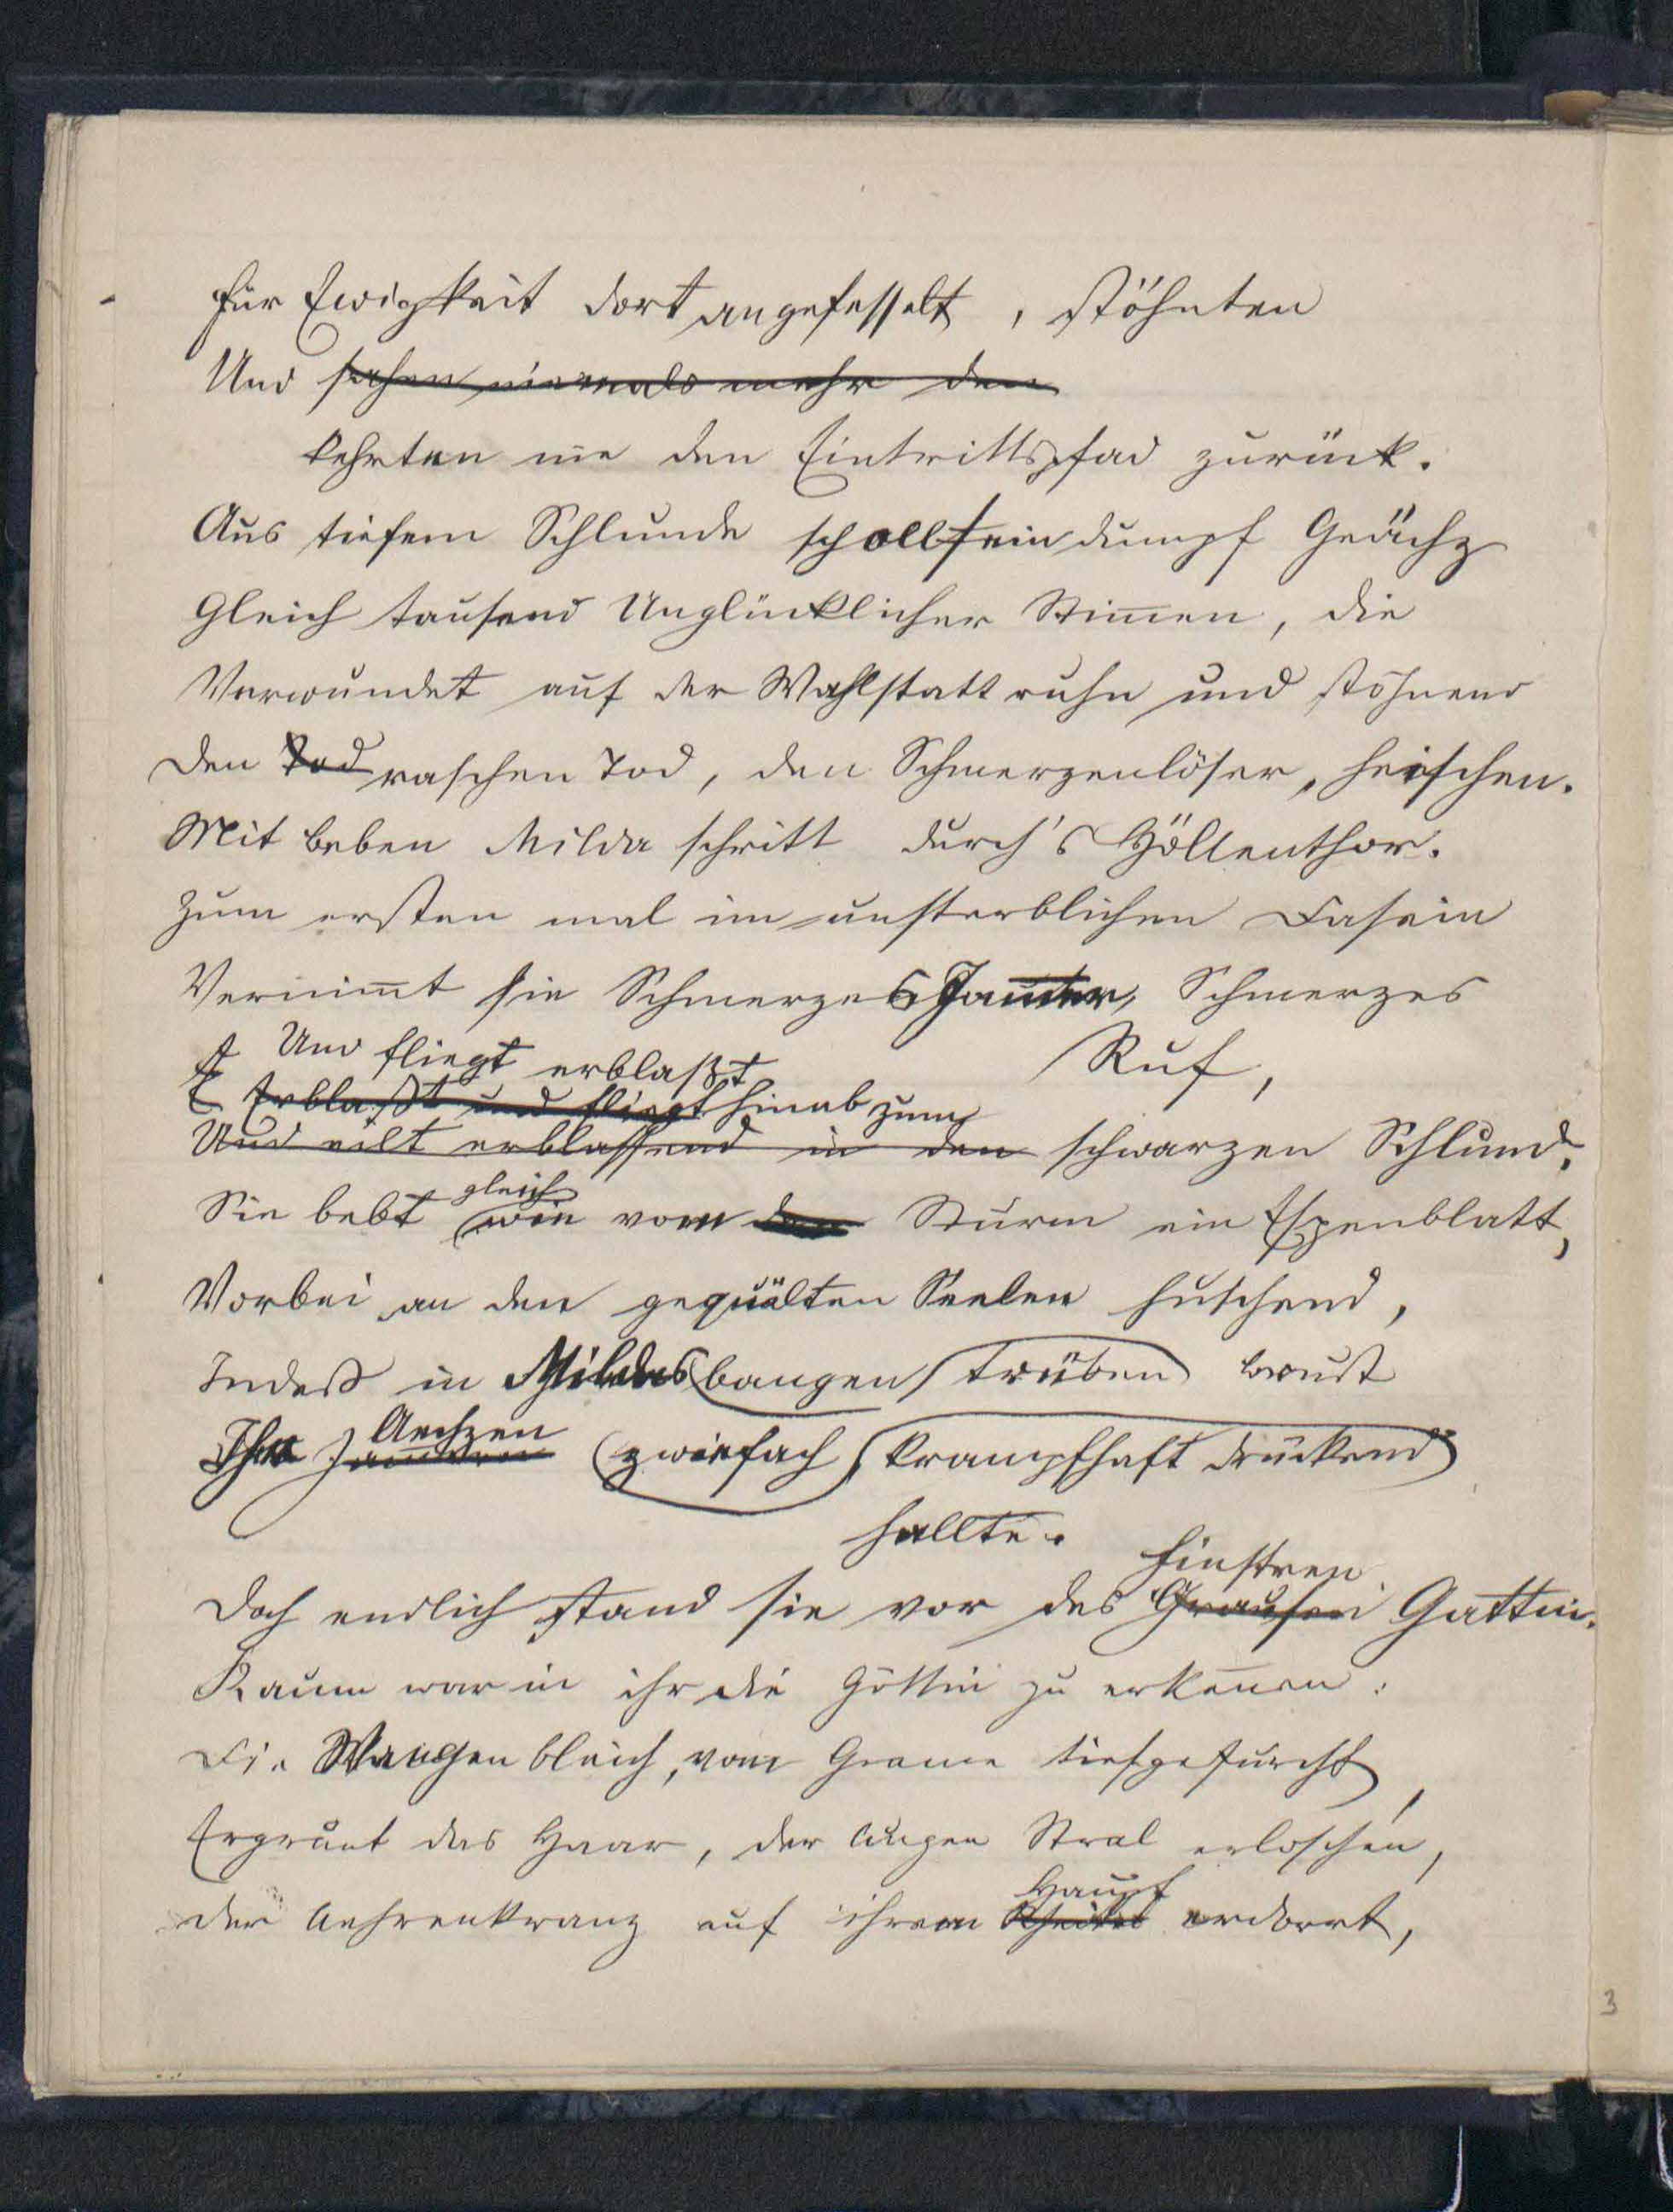 Für Ewigkeit dort angefesselt, stöhnten
Und sahen niemals mehr den
kehrten nie den Eintrittspfad zurück.
Aus tiefem Schlunde scholl ein dumpf Geächz
Gleich tausend Unglücklicher Stim̄en, die
Verwundet auf der Wahlstatt ruhn und stöhnend
Den Tod raschen Tod, den Schmerzenlöser, heischen.
Mit beben Milda schritt durch's Höllenthor.
Zum ersten mal im unsterblichen Dasein
Vernim̄t sie Schmerzes Jam̄er, Schmerzes
Ruf,
Und fliegt erblaßt
Erblaßt und fliegt hinab zum
Und eilt erblassend in den schwarzen Schlund.
gleich
Sie bebt wie vom den Sturm ein Espenblatt,
Vorbei an den gequälten Seelen huschend,
Indeß in Mildas bangen trüben brust
Aechzen
Ihr Jam̄ern zwiefach krampfhaft drückend
hallte.
finstren
Doch endlich stand sie vor des Grausen Gattin.
Kaum war in ihr die Göttin zu erken̄en:
Die Wangen bleich, vom Grame tiefgefurcht,
Ergraut das Haar, der Augen Stral erloschen,
Haupt
Der Aehrenkranz auf ihrem Scheitel verdorrt,
3